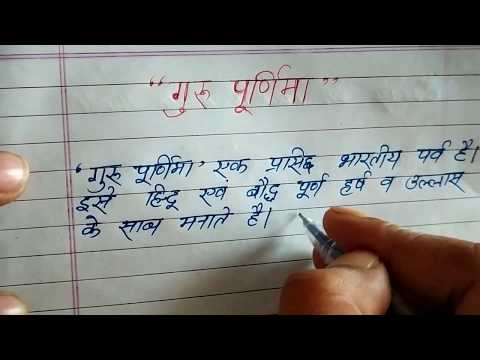 “गुरु पूर्णिमा”
‘गुरु पूर्णिमा’ एक प्रसिद्ध भारतीय पर्व है।
इसे हिन्दू एवं बौद्ध पूर्ण हर्ष व उल्लास
के साथ मनाते है।